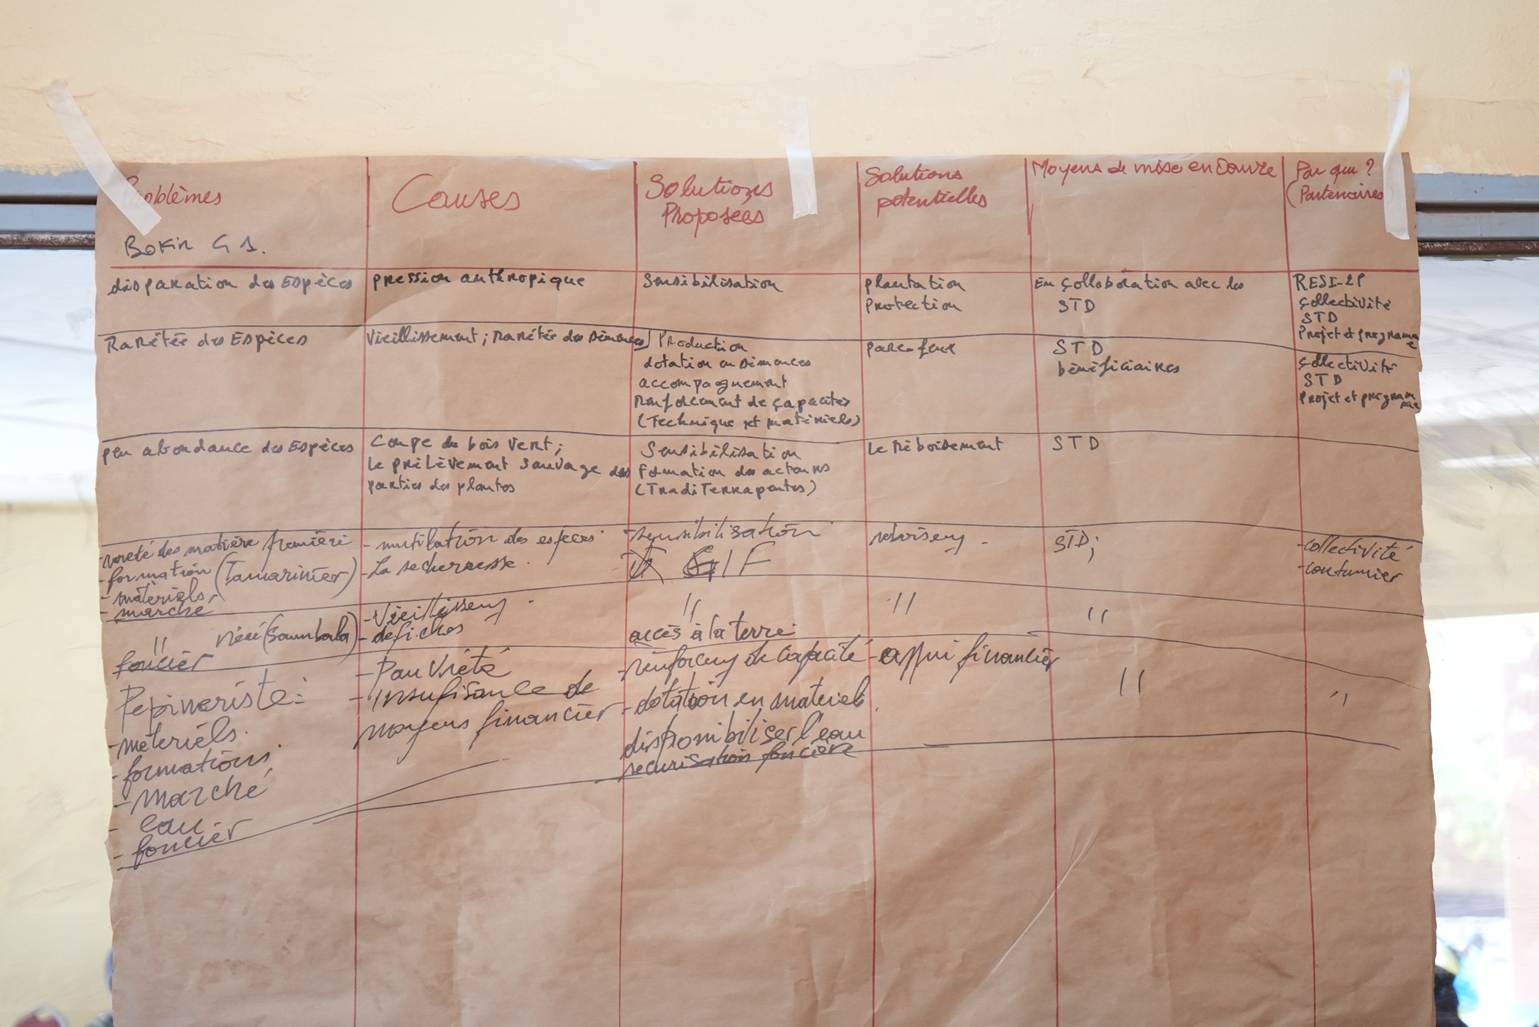 Problèmes
Bokin G 1.
Causes
Solutions
Proposées
Solutions
potentielles
Moyens de mise en Oeuvre
Par qui ?
(Partenaires)
disparation des Espèces
pression anthropique
Sensibilisation
plantation
Protection
En collaboration avec les
STD
RESI-2P
Collectivité
STD
Projet et programme
Raretée des Espèces
Vieillissement ; Raretée des Sémences
Production
dotation en Sémences
accompagnement
Renforcement de capacités
(Technique et matériels)
pare-feux
STD
bénéficiaires
Collectivité
STD
Projet et programme
peu abondance des Espèces
Coupe du bois vert ;
Le prélèvement sauvage des
parties des plantes
Sensibilisation
Formation des acteurs
(TradiTerrapentes)
Le Reboisement
STD
-rareté des matière première
-formation (Tamarinier)
-matériels
-marché
-mutilation des espèces
-La secheresse.
-sensibilisation
STD;
-Collectivité
-coutumier
" néré (Soumbala)
foncier
-défiches
"
accès à la terre
"
"
Pepinieriste:
-matériels.
-formations.
-marché
-eau
-foncier
-Pauvreté
-Insufisance de
moyens financier
-dotation en materiel.
disponibiliser l'eau
sécurisation foncière
-appui financier
"
"